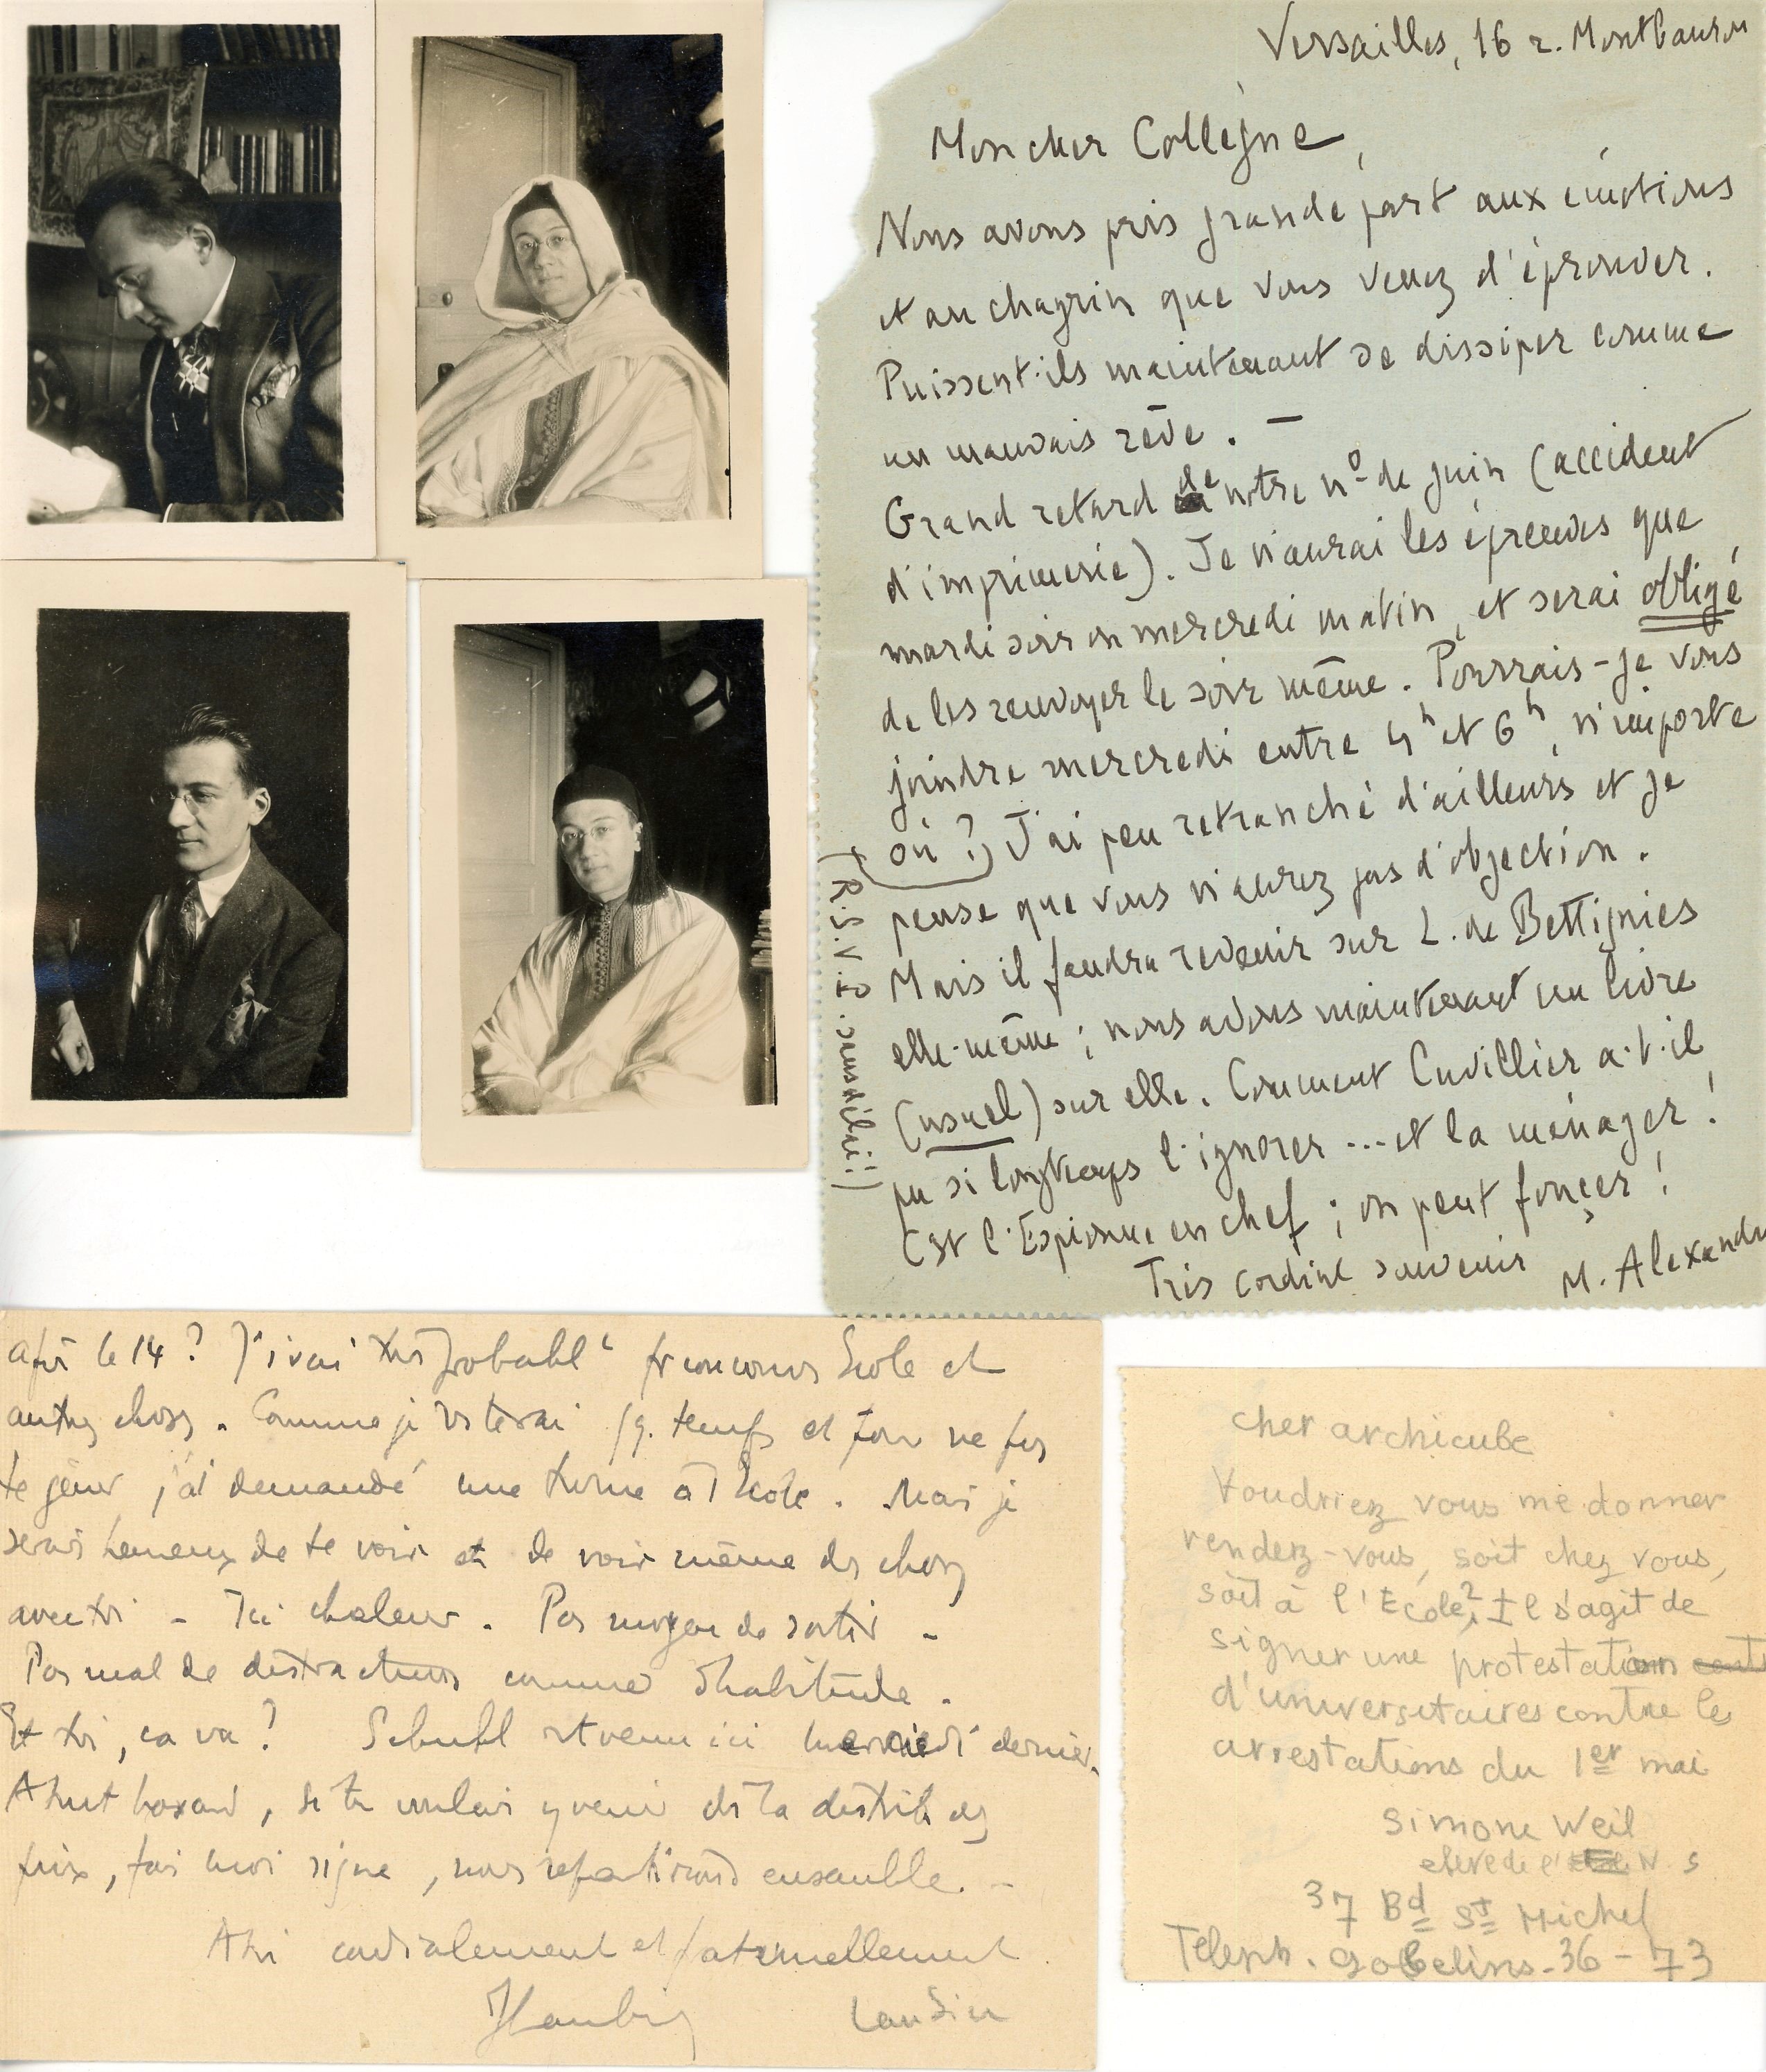 Versailles, 16 r. Montbauron
Mon cher Collègue,
Nous avons pris grande part aux émotions
et au chagrin que vous venez d'éprouver.
Puissent-ils maintenant se dissiper comme
un mauvais rêve. —
Grand retard de notre nº de juin (accident
d'imprimerie). Je n'aurai les épreuves que
mardi soir ou mercredi matin, et serai obligé
de les renvoyer le soir même. Pourrais-je vous
joindre mercredi entre 4h et 6h, n'importe
où ? J'ai peu retranché d'ailleurs et je
pense que vous n'aurez pas d'objection.
Mais il faudra revenir sur L. de Bettignies
elle-même ; nous avons maintenant un livre
(usuel) sur elle. Comment Cuvillier a-t-il
pu si longtemps l'ignorer ... et la ménager !
C'est l'Espionne en chef ; on peut foncer !
Très cordial souvenir M. Alexandre
(R.S.V.P. sans délai!)
le 14 ? J'irai très probablt pr concours Ecole et
autres choses. Comme je resterai qq. temps et pour ne pas
te gêner, j'ai demandé une turne à l'Ecole. Mais je
serais heureux de te voir et de voir même des choses
avec toi - Ici chaleur. Pas moyen de sortir -
Pas mal de distractions comme d'habitude.
Et toi, ça va ? Schuhl est venu ici mercredi dernier.
A tout hasard, si tu voulais y venir dès la distrib des
prix, fais moi signe, nous repartirions ensemble. -
A toi cordialement et fraternellement
cher archicube
Voudriez vous me donner
rendez-vous, soit chez vous,
soit à l'Ecole ? Il s'agit de
signer une protestation
d'universitaires contre les
arrestations du 1er mai
Simone Weil
élève de l'E N. S
37 Bd St Michel
Téleph. Gobelins-36-73